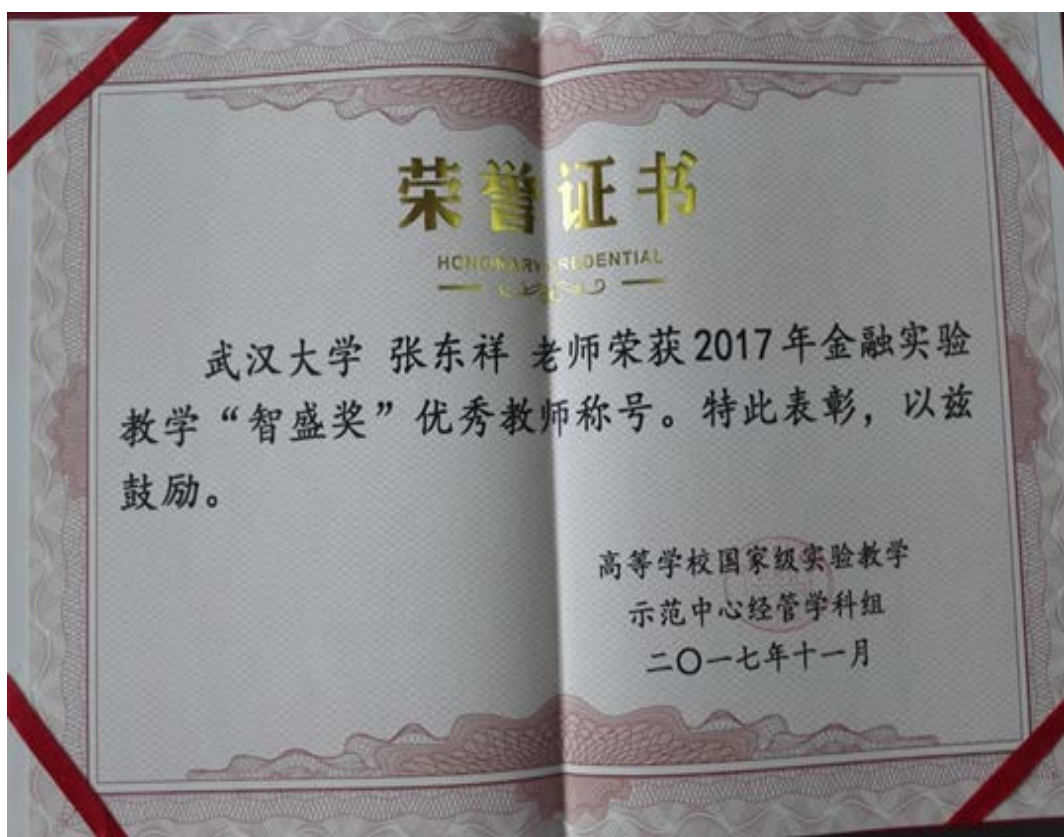 荣誉证书
HONORARY CREDENTIAL
武汉大学 张东祥 老师荣获2017年金融实验
教学“智盛奖”优秀教师称号。特此表彰，以兹
鼓励。
高等学校国家级实验教学
示范中心经管学科组
二〇一七年十一月